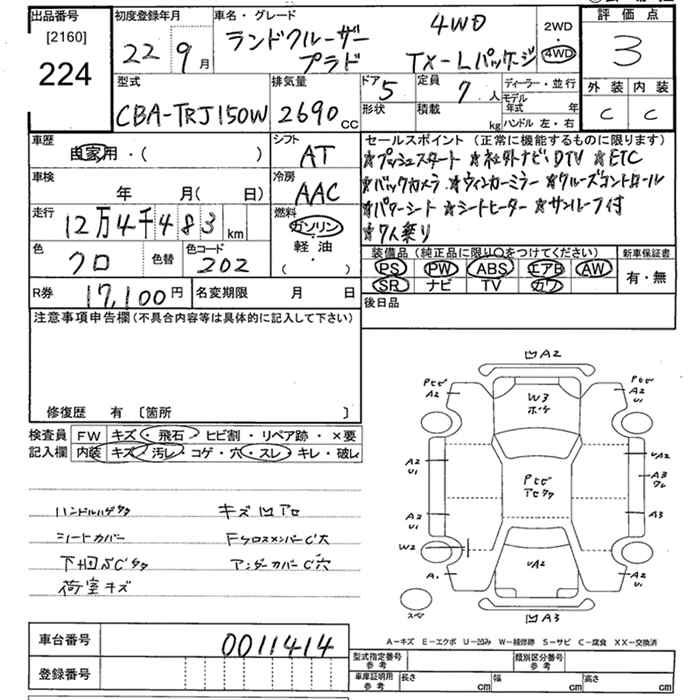 出品番号 初度登録年月 車名・グレード 4WD 2WD 評価点
[2160] 22 9月 ランドクルーザー プラド TX-Lパッケージ 4WD 3
224
型式 排気量 ドア 5 定員 7人 ディーラー・並行 外装 内装
CBA-TRJ150W 2690cc 形状 積載 kg モデル年式 年 C C
ハンドル 左・右
車歴 自家用・( ) シフト AT セールスポイント (正常に機能するものに限ります)
☆プッシュスタート ☆社外ナビ DTV ☆ETC
車検 年 月( 日) 冷房 AAC ☆バックカメラ ☆ウィンカーミラー ☆クルーズコントロール
走行 12万4千483km 燃料 ガソリン ☆パワーシート ☆シートヒーター ☆サンルーフ付
軽油 ・( ) ☆7人乗り
色 クロ 色替 色コード 202 装備品(純正品に限り〇をつけてください) 新車保証書
PS PW ABS エアB AW 有・無
R券 17,100円 名変期限 月 日 SR ナビ TV カワ
後日品
注意事項申告欄(不具合内容等は具体的に記入して下さい)
修復歴 有 [箇所 ]
検査員 FW キズ・飛石・ヒビ割・リペア跡・×要
記入欄 内装 キズ・汚レ・コゲ・穴・スレ・キレ・破レ
ハンドルハゲタタ キズ凹アセ
シートカバー FクロスメンバーC大
下回りSCタタ アンダーカバーC穴
荷室キズ
凹A2
Pヒビ A2 W3 ボケ Pヒビ A2 U1
A2 U1 Pヒビ アセタタ UA2
A3 ワレ
A2 U1 A3
W2
A1 UA2 A2 U1
スペア 凹A3
A-キズ E-エクボ U-凹み W-補修跡 S-サビ C-腐食 XX-交換済
車台番号 0011414 型式指定番号 参考 類別区分番号 参考
登録番号 車庫証明用 参考 長さ cm 幅 cm 高さ cm